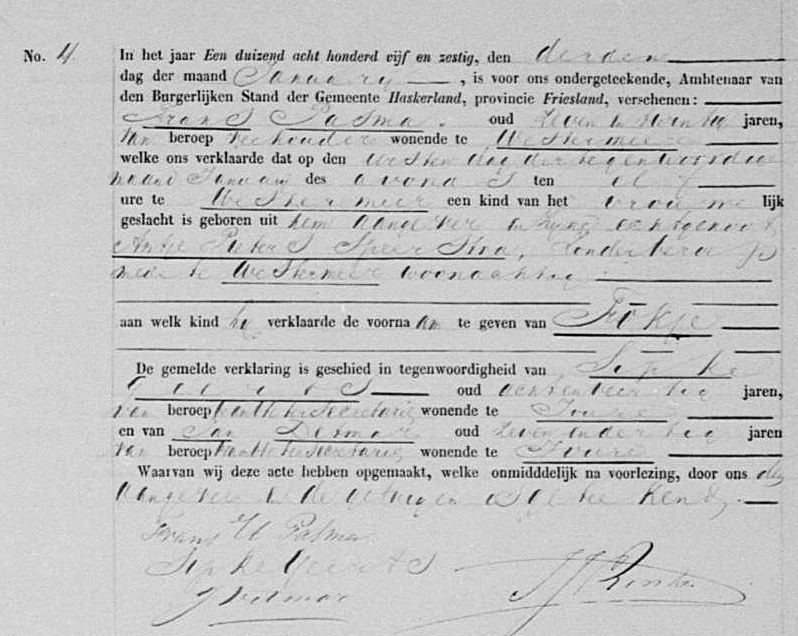 No. 4. In het jaar Een duizend acht honderd vijf en zestig, den derden
dag der maand January, is voor ons ondergeteekende, Ambtenaar van
den Burgerlijken Stand der Gemeente Haskerland, provincie Friesland, verschenen:
Frans Palma. oud zeven en twintig jaren,
van beroep veehouder wonende te Westermeer
welke ons verklaarde dat op den eersten dag der tegenwoordige
maand January des avonds ten elf
ure te Westermeer een kind van het vrouwelijk
geslacht is geboren uit hem aangever en zyne echtgenoot
Antje Pieters Speerstra, zonder beroep
mede te Westermeer woonachtig
aan welk kind hy verklaarde de voornaam te geven van Fokje
De gemelde verklaring is geschied in tegenwoordigheid van Sipke
Geerts oud achtenveertig jaren,
van beroep wonende te Joure
en van Jan Detmar oud zeven en dertig jaren
van beroep wonende te Joure
Waarvan wij deze acte hebben opgemaakt, welke onmiddelijk na voorlezing, door ons den
aangever en de getuigen is geteekend.
Frans Palma
Sipke Geerts
J Detmar